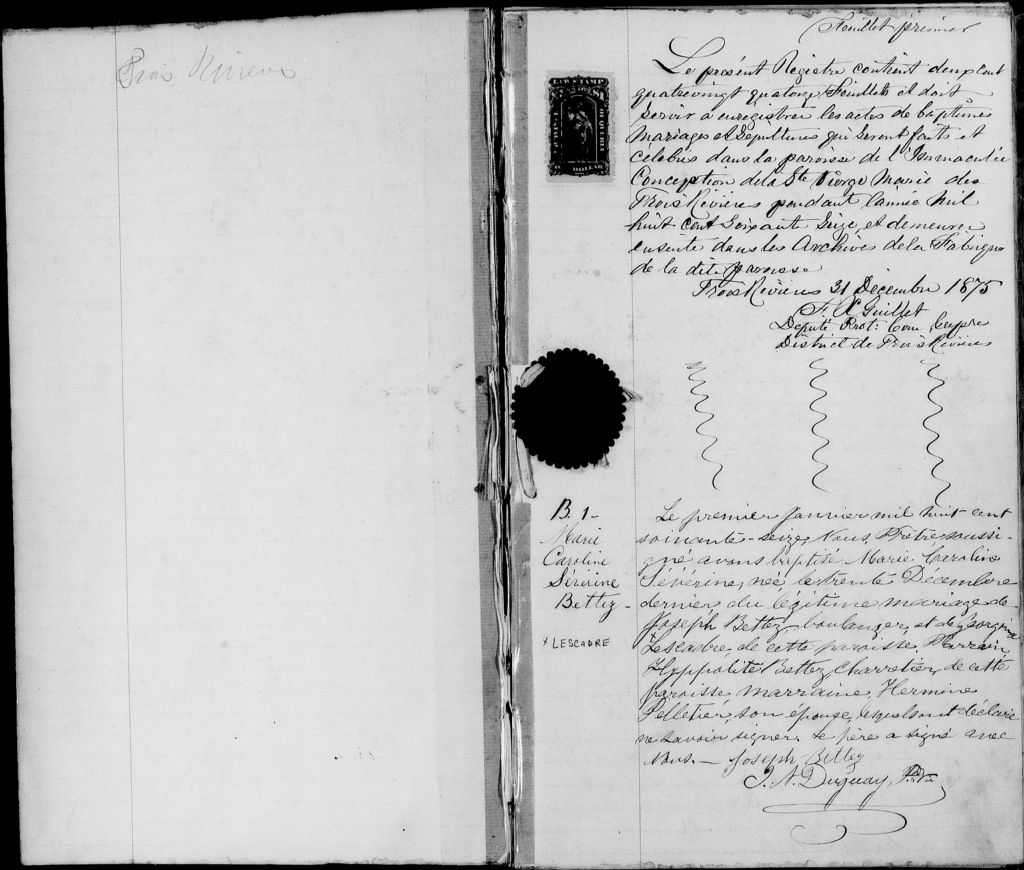 Trois Rivieres
Feuillet premier
LAW STAMP
DOLLAR
Le présent Registre contient deux cent
quatrevingt quatorze Feuillets et doit
servir à enregistrer les actes de baptêmes
mariages et Sépultures qui seront faits et
célébrés dans la paroisse de l'Immaculée
Conception de la Ste Vierge Marie des
Trois Rivières pendant l'année Mil
huit cent soixante seize, et demeurer
ensuite dans les Archives de la Fabrique
de la dite paroisse
Trois Rivières 31 Décembre 1875
F. X Guillet
Député Prot:
District de Trois Rivières
B. 1 -
Marie
Caroline
Sévérine
Bettez -
x LESCADRE
Le premier Janvier mil huit cent
soixante-seize, Nous, Prêtre soussi-
gné avons baptisé Marie Caroline
Sévérine, née le trente Décembre
dernier du légitime mariage de
Joseph Bettez, boulanger, et de Georgina
x Lescadre de cette paroisse. Parrain
Hyppolite Bettez, charretier, de cette
paroisse marraine, Hermine
Pelletier, son épouse, lesquels ont déclaré
ne savoir signer. Le père a signé avec
Nous. — Joseph Bettez
J. N. Duguay, Ptre